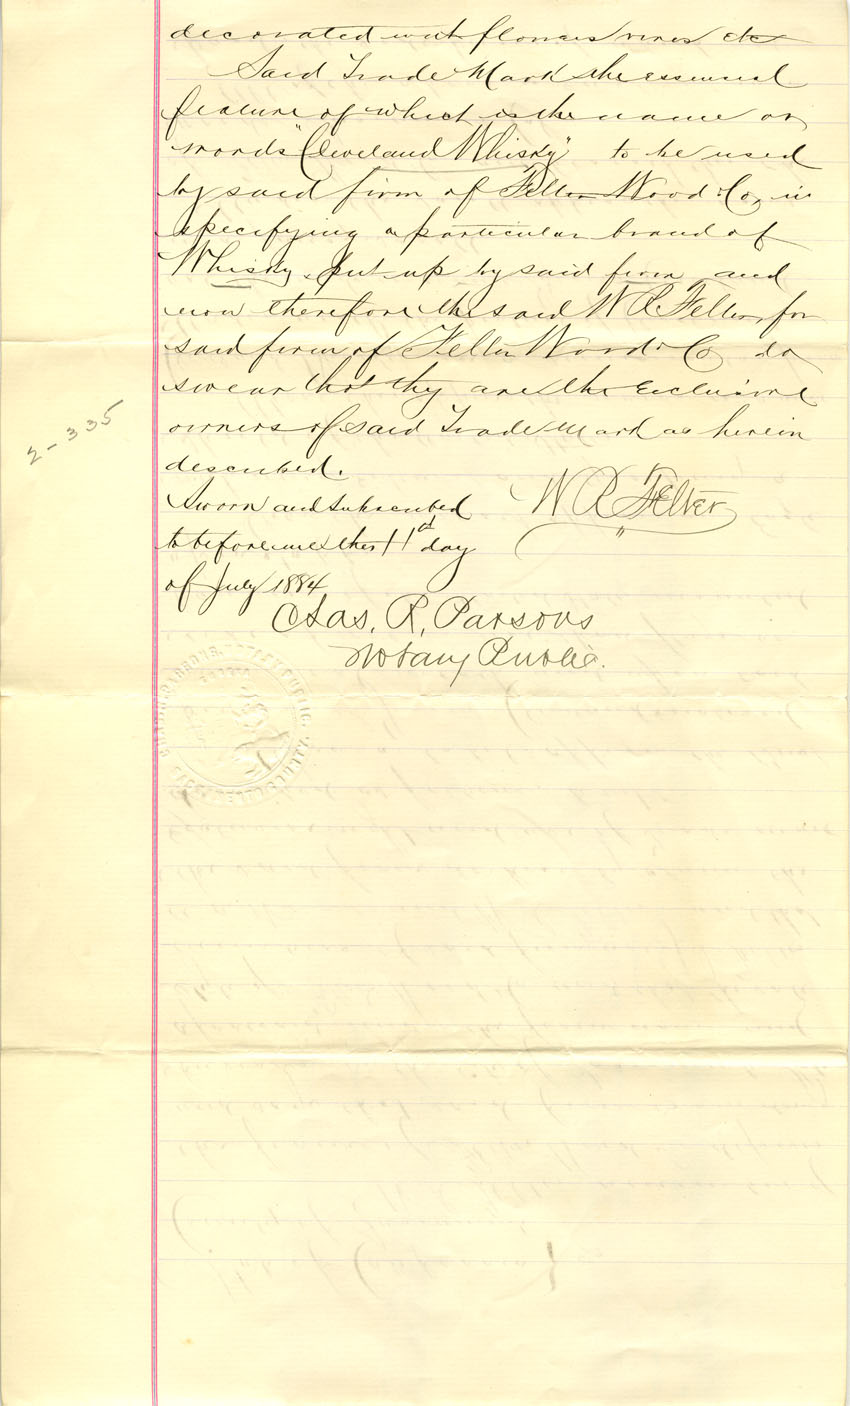 decorated with flowers vines etc
Said Trade Mark the essential
feature of which is the name or
words "Cleveland Whisky" to be used
by said firm of Felter Wood & Co, in
specifying a particular brand of
Whisky, put up by said firm and
now therefore the said W R Felter, for
said firm of Felter Wood & Co do
swear that thy are the Exclusive
owners of said Trade Mark as herein
described.
Sworn and Subscribed
to before me this 11th day
of July 1884
W R Felter
Chas. R. Parsons
Notary Public.
2-335
NOTARY PUBLIC